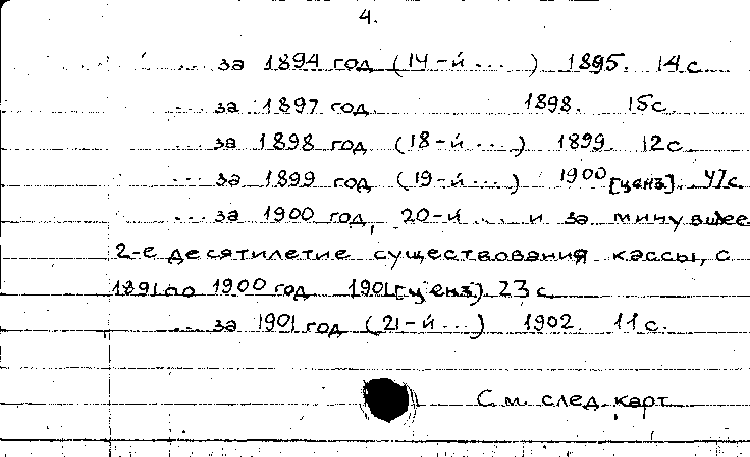 4.
... за 1894 год (14-й ... ) 1895. 14 с.
... за 1897 год. 1898. 15 с.
... за 1898 год (18-й ... ) 1899. 12 с.
... за 1899 год (19-й ... ) 1900 [ценз]. 47 с.
... за 1900 год, 20-й ... и за минувшее
2-е десятилетие существования кассы, с
1891 по 1900 год 1901 [ценз]. 23 с.
... за 1901 год (21-й ... ) 1902. 11 с.
См. след. карт.